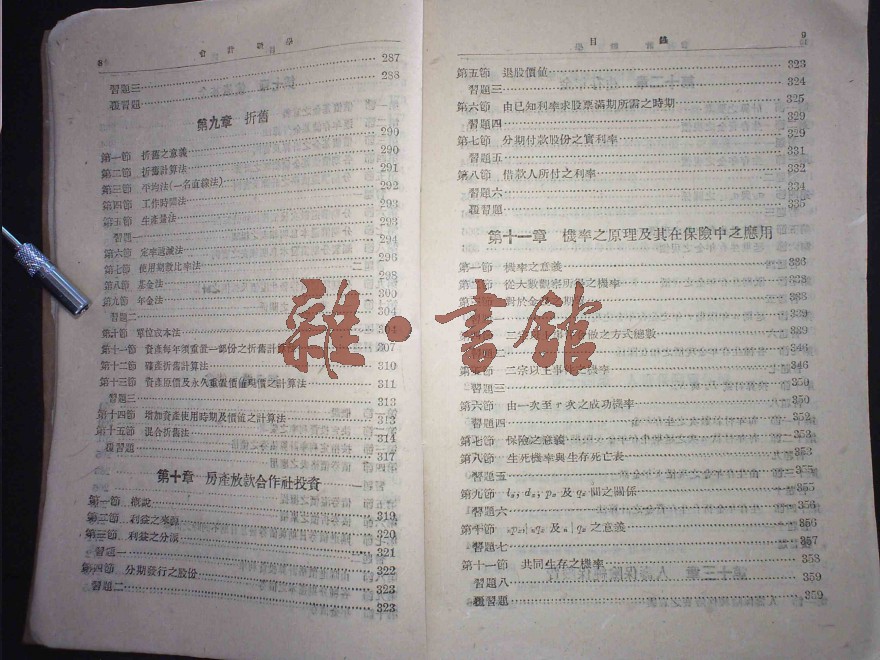 8 會計數學
習題三 287
複習題 288
第九章 折舊
第一節 折舊之意義 290
第二節 折舊計算法 290
第三節 平均法(一名直線法) 291
第四節 工作時間法 292
第五節 生產量法 293
習題一 293
第六節 定率遞減法 294
第七節 使用期數比率法 296
第八節 基金法 298
第九節 年金法 300
習題二 304
第十節 單位成本法
第十一節 資產每年須重置一部份之折舊計算法 307
第十二節 確產折舊計算法 310
第十三節 資產原價及永久重置價值現價之計算法 311
習題三 313
第十四節 增加資產使用時期及價值之計算法 313
第十五節 混合折舊法 314
複習題 317
第十章 房產放款合作社投資
第一節 概說 319
第二節 利益之來源 320
第三節 利益之分派
習題一 321
第四節 分期發行之股份 322
習題二 323
323
目錄 9
第五節 退股價值 323
習題三 324
第六節 由已知利率求股票滿期所需之時期 325
習題四 329
第七節 分期付款股份之實利率 329
習題五 331
第八節 借款人所付之利率 332
習題六 334
複習題 335
第十一章 機率之原理及其在保險中之應用
第一節 機率之意義 336
從大數觀察所得之機率 338
對於金 338
339
做之方式總數 339
346
第五節 二宗以上事 機率 346
習題三 350
第六節 由一次至 r 次之成功機率 350
習題四 352
第七節 保險之意義 353
第八節 生死機率與生存死亡表 353
習題五 355
第九節 lx, dx, px 及 qx 間之關係 355
習題六 356
第十節 之意義 356
習題七 357
第十一節 共同生存之機率 358
習題八 359
複習題 359
雜·書館